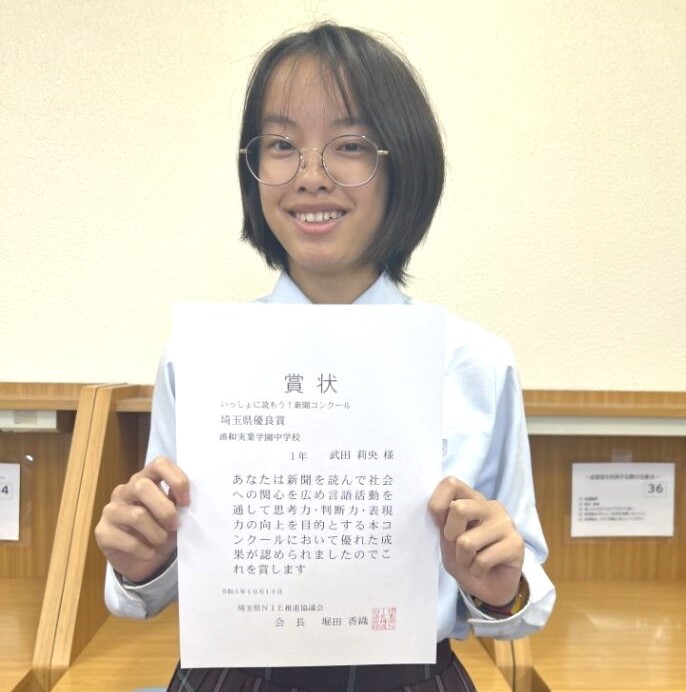 賞状
いっしょに読もう！新聞コンクール
埼玉県優良賞
浦和実業学園中学校
1年 武田 莉央 様
あなたは新聞を読んで社会
への関心を広め言語活動を
通して思考力・判断力・表現
力の向上を目的とする本コ
ンクールにおいて優れた成
果が認められましたのでこ
れを賞します
埼玉県NIE推進協議会
会 長 堀田 香織
4
36